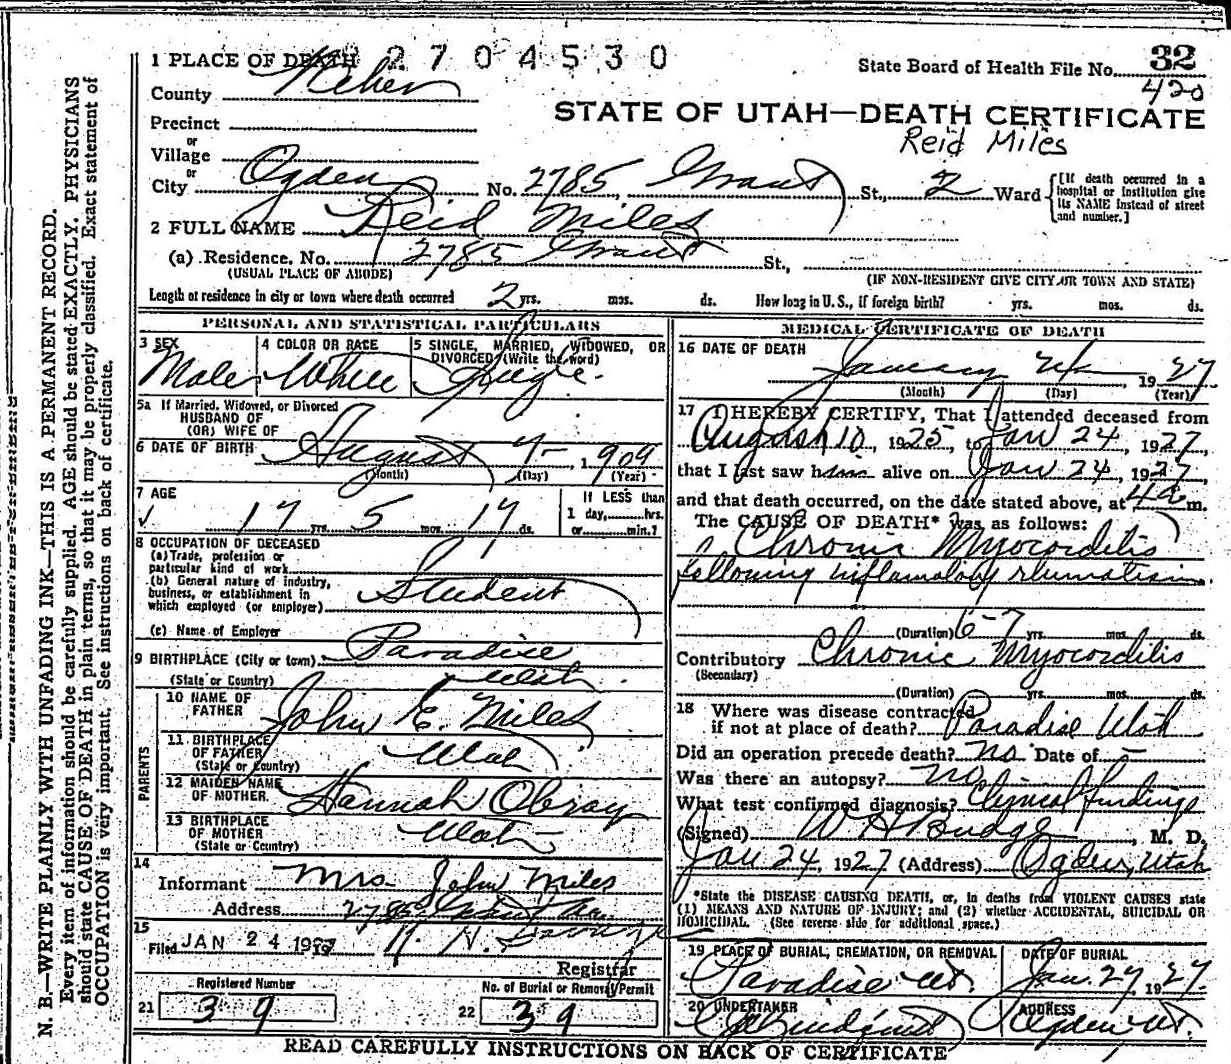 N. B.—WRITE PLAINLY WITH UNFADING INK—THIS IS A PERMANENT RECORD.
Every item of information should be carefully supplied. AGE should be stated EXACTLY. PHYSICIANS
should state CAUSE OF DEATH in plain terms, so that it may be properly classified. Exact statement of
OCCUPATION is very important. See instructions on back of certificate.
2704530
1 PLACE OF DEATH
State Board of Health File No. 32
420
County Weber
STATE OF UTAH—DEATH CERTIFICATE
Reid Miles
Precinct
or
Village
or
City Ogden No. 2785 Grant St., 2 Ward
[If death occurred in a hospital or Institution give its NAME instead of street and number.]
2 FULL NAME Reid Miles
(a) Residence. No. 2785 Grant St.,
(USUAL PLACE OF ABODE) (IF NON-RESIDENT GIVE CITY OR TOWN AND STATE)
Length of residence in city or town where death occurred 2 yrs. mos. ds. How long in U. S., if foreign birth? yrs. mos. ds.
PERSONAL AND STATISTICAL PARTICULARS
3 SEX 4 COLOR OR RACE 5 SINGLE, MARRIED, WIDOWED, OR
DIVORCED (Write the word)
Male White Single.
5a If Married, Widowed, or Divorced
HUSBAND OF
(OR) WIFE OF
6 DATE OF BIRTH August 7- 1909
(Month) (Day) (Year)
7 AGE
17 yrs. 5 mos. 17 ds.
If LESS than
1 day, hrs.
or min.?
8 OCCUPATION OF DECEASED
(a) Trade, profession or
particular kind of work
(b) General nature of industry,
business, or establishment in
which employed (or employer) Student
(c) Name of Employer
9 BIRTHPLACE (City or town) Paradise
(State or Country) Utah
PARENTS
10 NAME OF
FATHER John E. Miles
11 BIRTHPLACE
OF FATHER
(State or Country) Utah
12 MAIDEN NAME
OF MOTHER Hannah Obray
13 BIRTHPLACE
OF MOTHER
(State or Country) Utah
14
Informant Mrs. John Miles
Address 2785 Grant Ave
15
Filed JAN 24 19
Registrar
Registered Number No. of Burial or Removal Permit
21 39 22 39
MEDICAL CERTIFICATE OF DEATH
16 DATE OF DEATH
January 24 1927
(Month) (Day) (Year)
17 I HEREBY CERTIFY, That I attended deceased from
August 10 1925 to Jan 24, 1927,
that I last saw him alive on Jan 24, 1927,
and that death occurred, on the date stated above, at 4 a m.
The CAUSE OF DEATH* was as follows:
Chronic Myocorditis
following inflamatory rhumatism.
(Duration) 6-7 yrs. mos. ds.
Contributory Chronic Myocorditis
(Secondary)
(Duration) yrs. mos. ds.
18 Where was disease contracted
if not at place of death? Paradise Utah
Did an operation precede death? no Date of —
Was there an autopsy? no
What test confirmed diagnosis? Clinical findings
(Signed) W H Budge, M. D.
Jan 24, 1927 (Address) Ogden, Utah
*State the DISEASE CAUSING DEATH, or, in deaths from VIOLENT CAUSES state
(1) MEANS AND NATURE OF INJURY; and (2) whether ACCIDENTAL, SUICIDAL OR
HOMICIDAL. (See reverse side for additional space.)
19 PLACE OF BURIAL, CREMATION, OR REMOVAL DATE OF BURIAL
Paradise Ut. Jan. 27, 1927.
20 UNDERTAKER ADDRESS
Ogden Ut.
READ CAREFULLY INSTRUCTIONS ON BACK OF CERTIFICATE